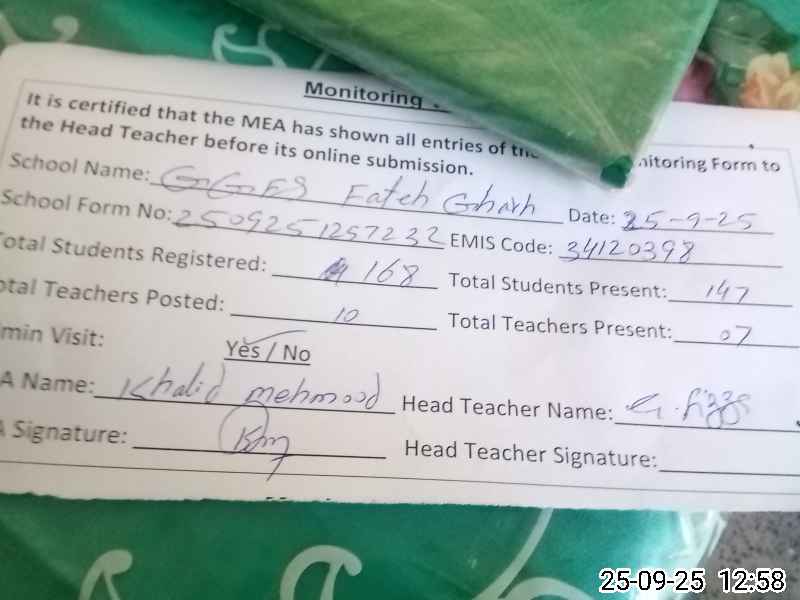 Monitoring
It is certified that the MEA has shown all entries of the nitoring Form to
the Head Teacher before its online submission.
School Name: GGES Fateh Gharh Date: 25-9-25
School Form No: 2509251257232 EMIS Code: 34120398
otal Students Registered: 168 Total Students Present: 147
otal Teachers Posted: 10 Total Teachers Present: 07
min Visit: Yes / No
A Name: Khalid mehmood Head Teacher Name:
A Signature: Head Teacher Signature:
25-09-25 12:58